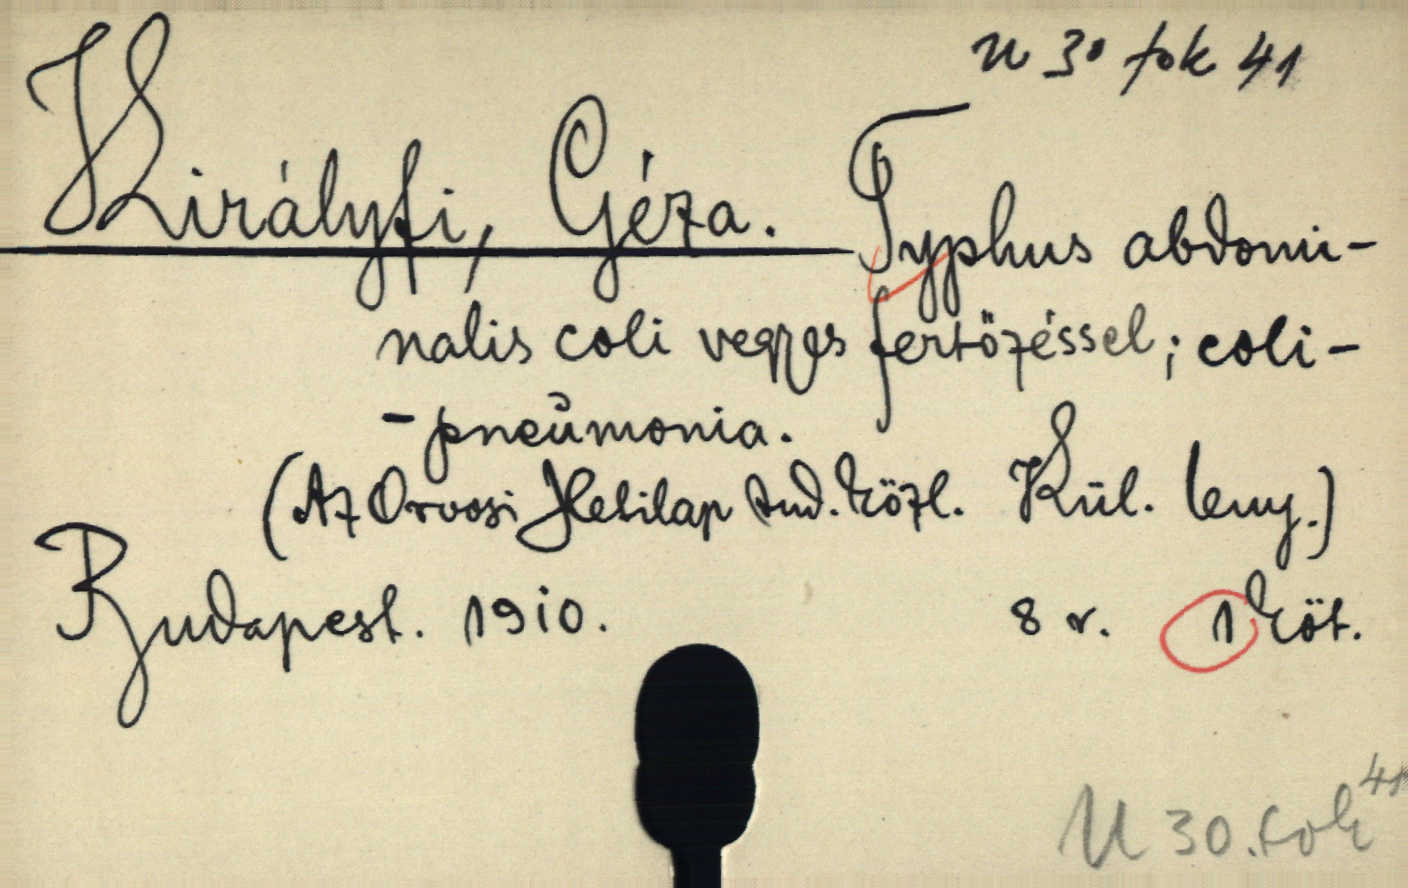 U 30 tok 41
Királyfi, Géza. Typhus abdomi-
nalis coli vegyes fertőzéssel; coli-
-pneumonia.
(Az Orvosi Hetilap tud. közl. Kül. leny.)
Budapest. 1910. 8 r. 1 köt.
U 30. tok 41